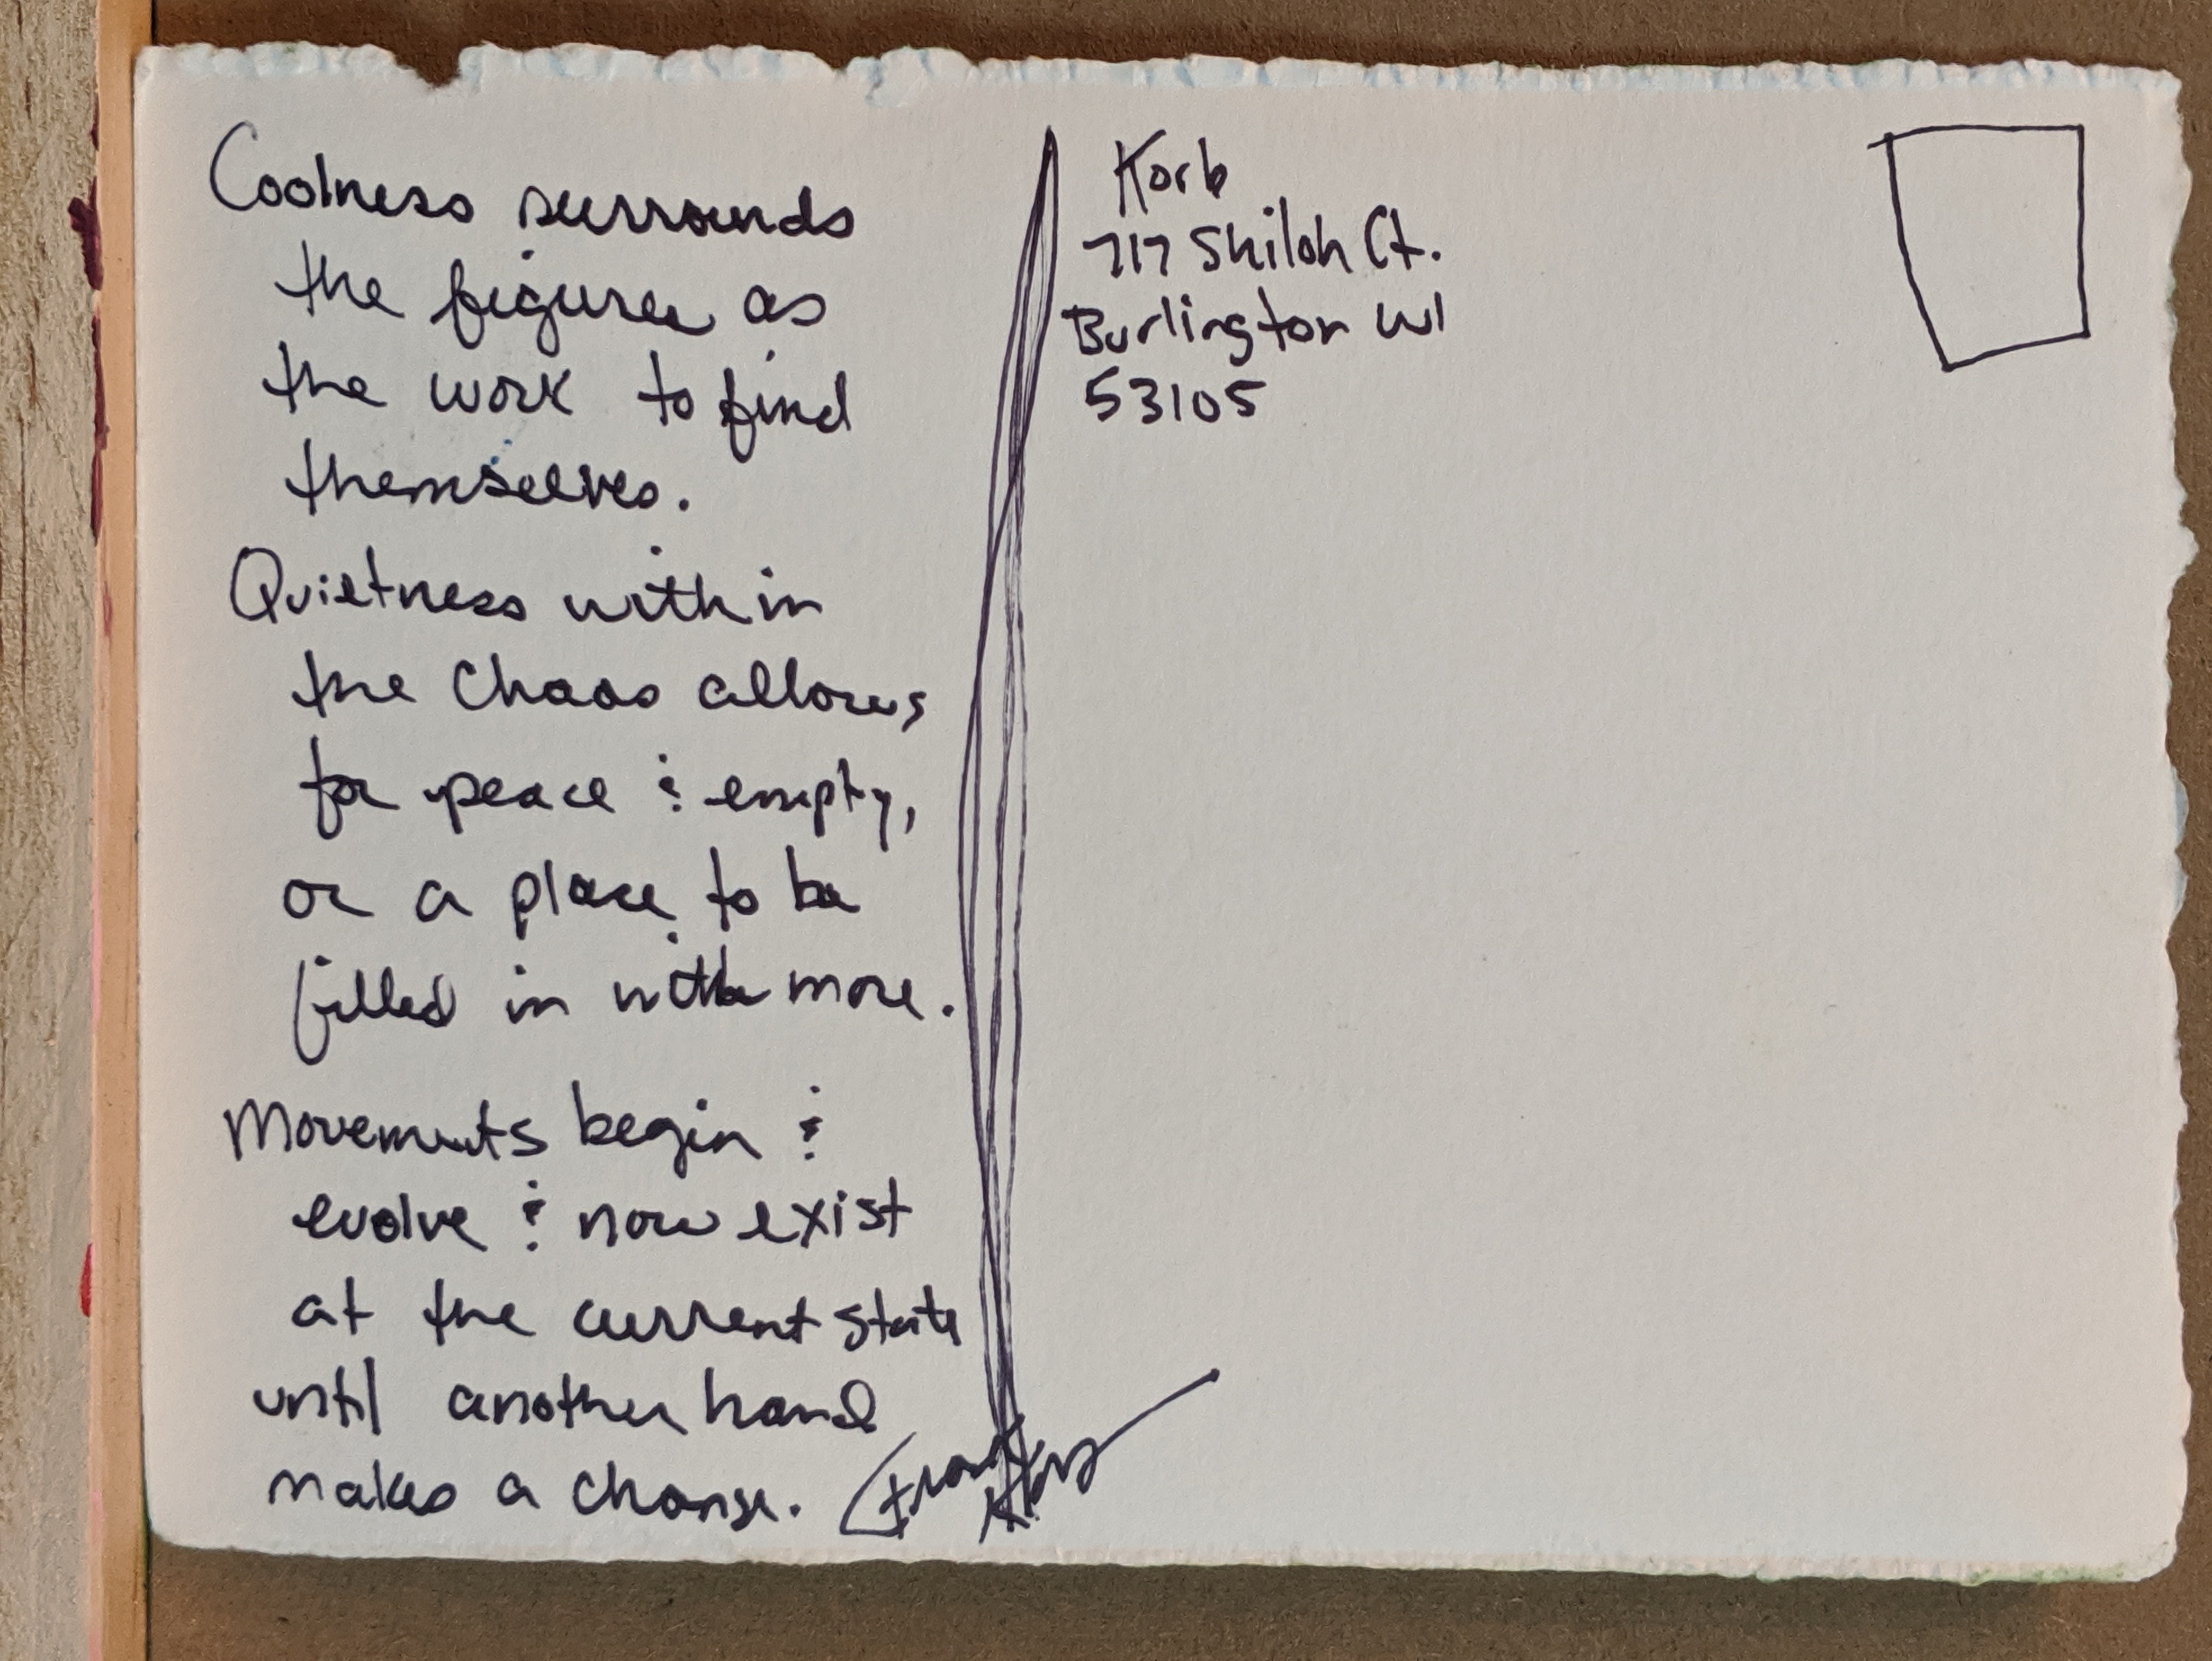 Coolness surrounds
the figures as
the work to find
themselves.
Quietness within
the chaos allows
for peace & empty,
or a place to be
filled in with more.
Movements begin &
evolve & now exist
at the current state
until another hand
makes a change.
Frank Korb
Korb
717 Shiloh Ct.
Burlington WI
53105